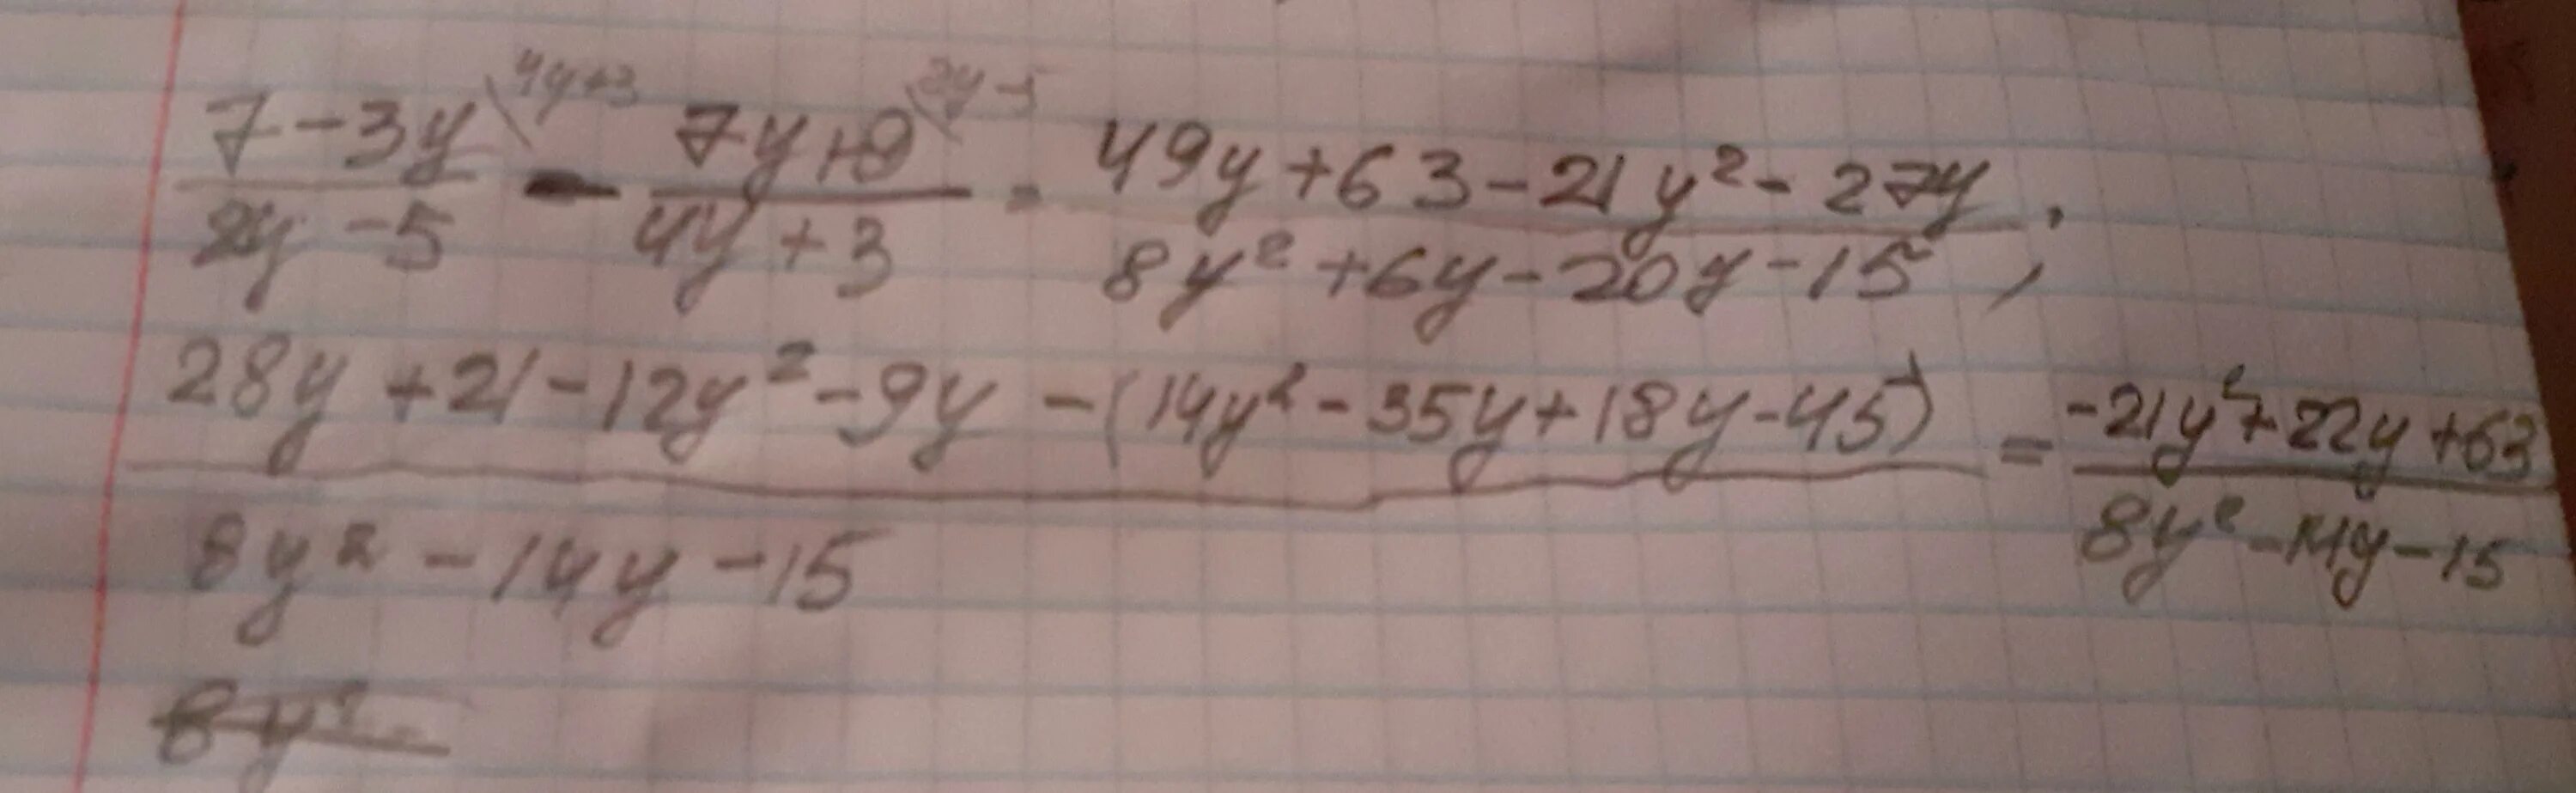 7-3y\4y+3 / 2y-5 - 7y+9\2y-5 / 4y+3 = 49y+63-21y²-27y / 8y²+6y-20y-15 ;
28y+21-12y²-9y-(14y²-35y+18y-45) / 8y²-14y-15 = -21y²+22y+63 / 8y²-14y-15
8y²